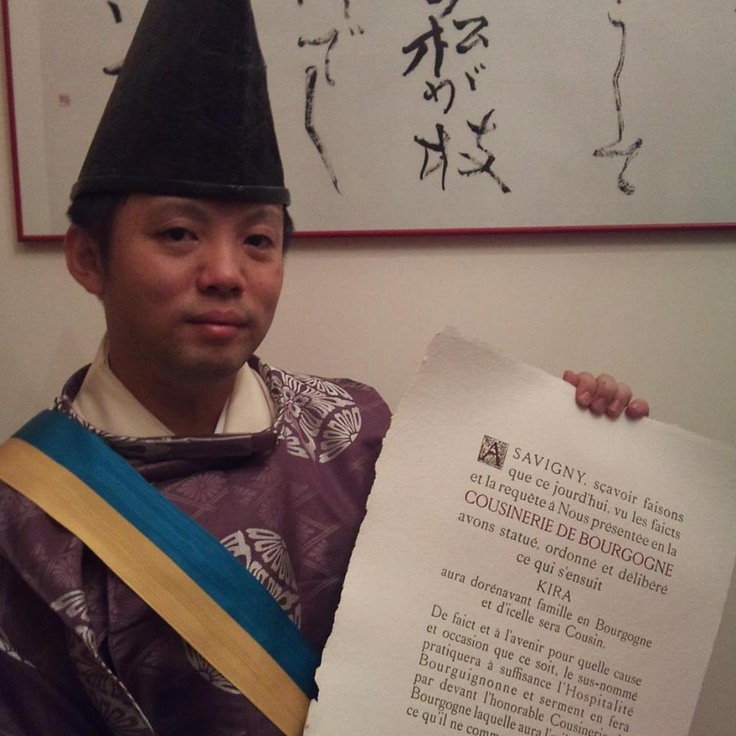 でし
松が枝
うして
A SAVIGNY, sçavoir faisons
que ce jourd'hui, vu les faicts
et la requête à Nous présentée en la
COUSINERIE DE BOURGOGNE
avons statué, ordonné et délibéré
ce qui s'ensuit
KIRA
aura dorénavant famille en Bourgogne
et d'icelle sera Cousin.
De faict et à l'avenir pour quelle cause
et occasion que ce soit, le sus-nommé
pratiquera à suffisance l'Hospitalité
Bourguignonne et serment en fera
par devant l'honorable Cousinerie de
Bourgogne laquelle aura
ce qu'il ne